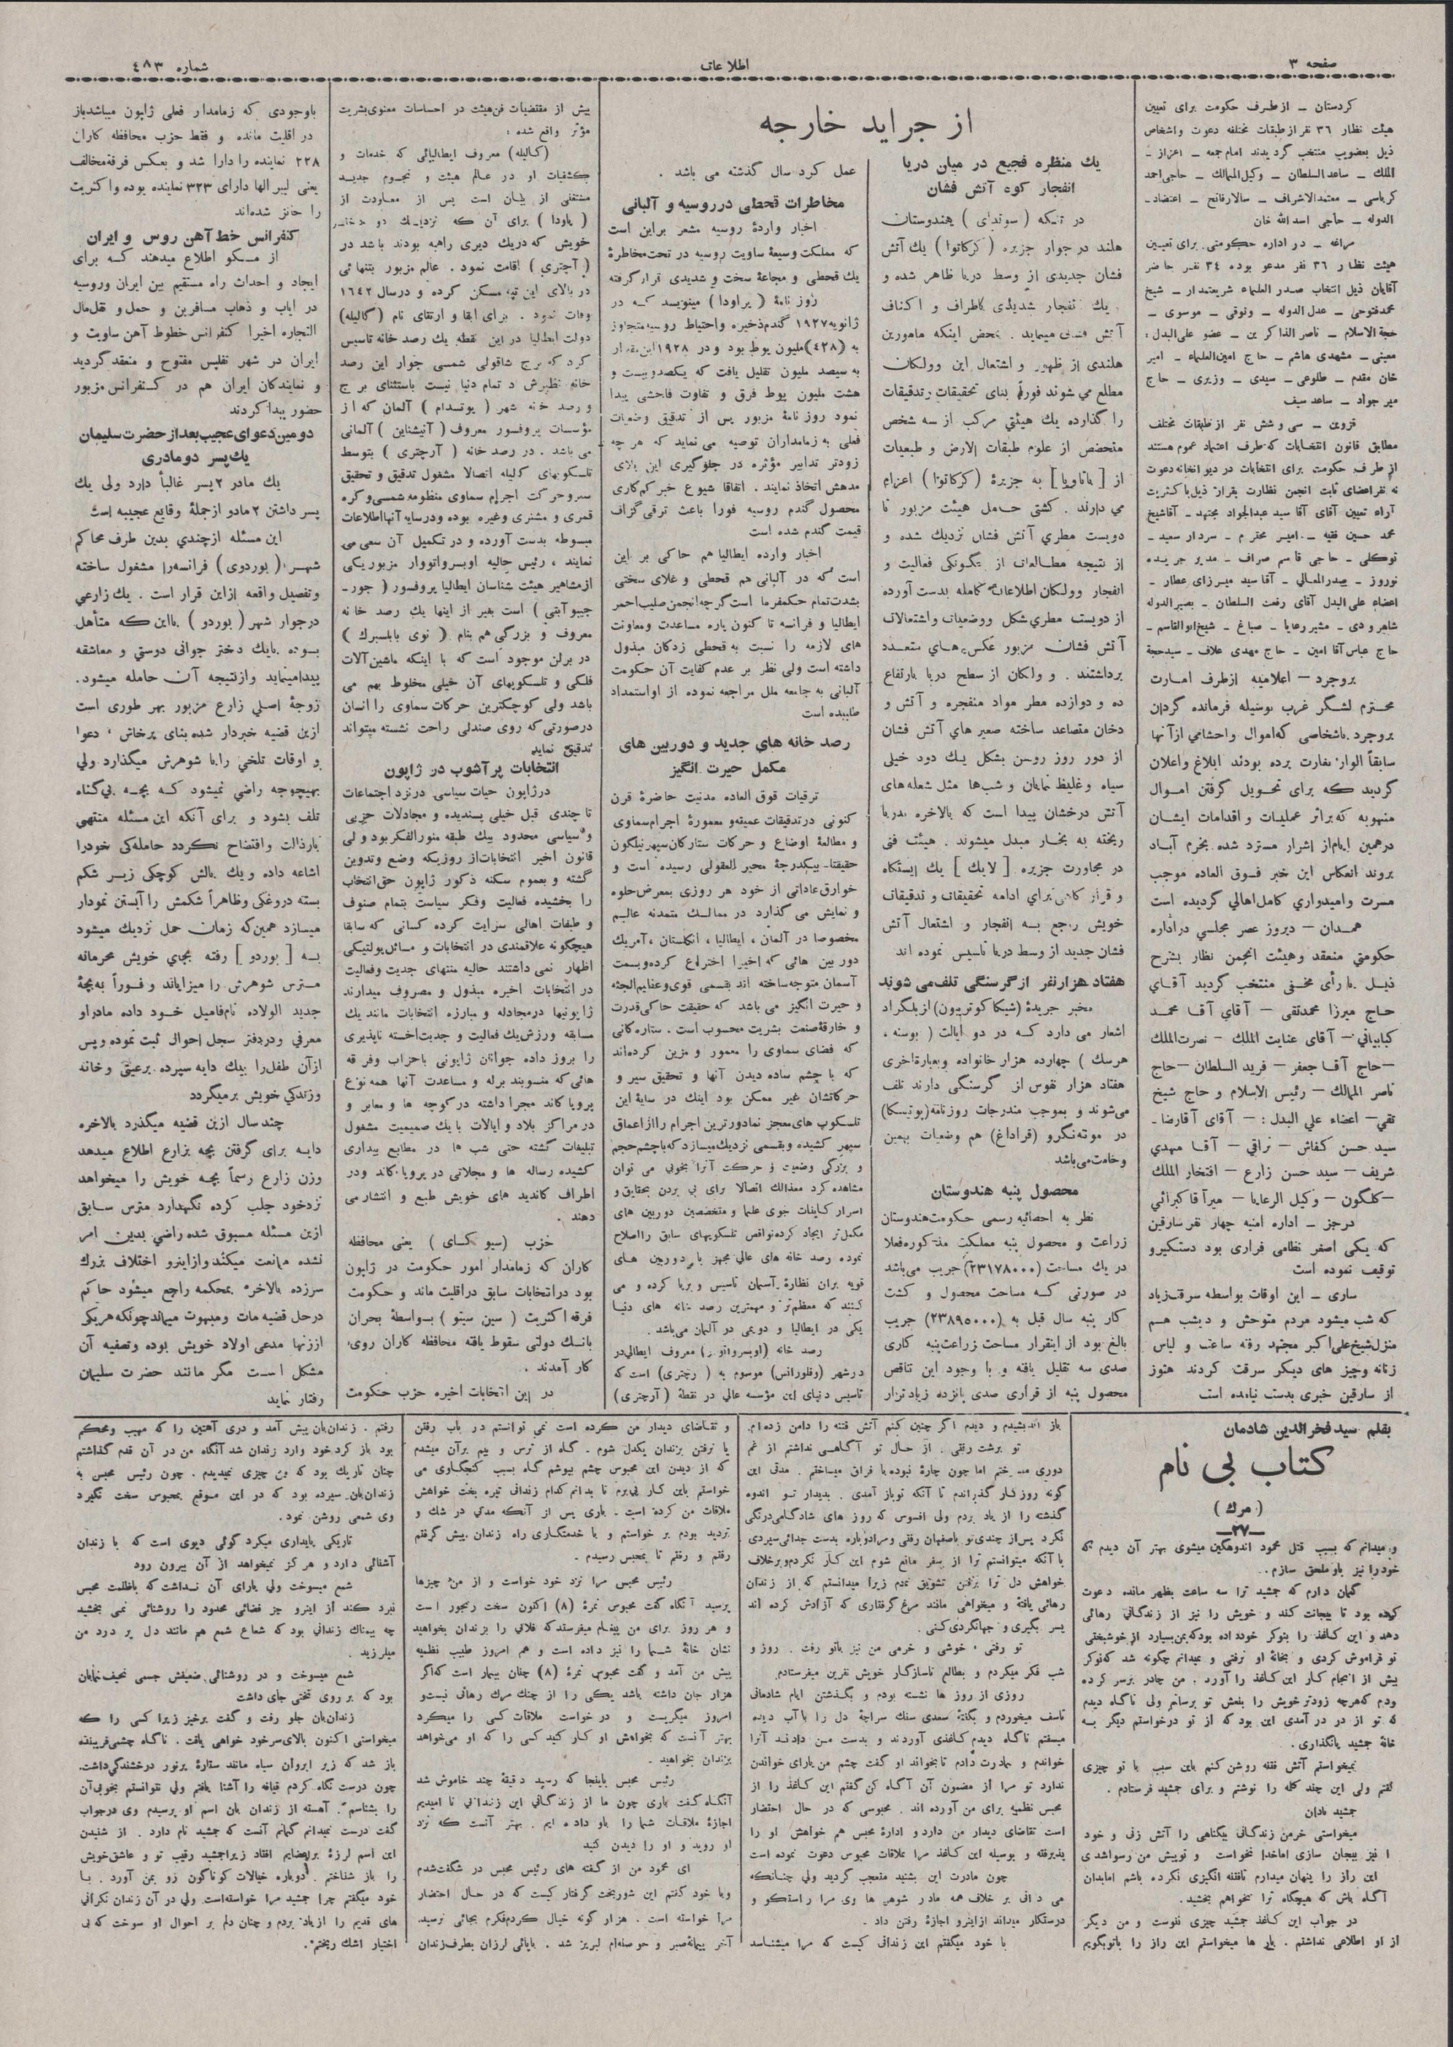 صفحه ۳
اطلاعات
شماره ۴۸۳
کردستان ــ از طرف حکومت برای تعیین
هیئت نظار ۳۶ نفر از طبقات مختلفه دعوت واشخاص
ذیل بعضویت منتخب گردیدند امام جمعه ــ اعزاز ــ
الملك ــ ساعد السلطان ــ وکیل الممالك ــ حاجی احمد
کرباسی ــ معتمد الاشراف ــ سالار فاتح ــ اعتضاد ــ
الدوله ــ حاجی اسد الله خان
مراغه ــ در اداره حکومتی برای تعیین
هیئت نظار ۳۶ نفر مدعو بوده ۳۴ نفر حاضر
آقایان ذیل انتخاب صدر العلماء شریعتمدار ــ شیخ
محمد فتوحی ــ عدل الدوله ــ وثوقی ــ موسوی ــ
حجة الاسلام ــ ناصر الذاکرین ــ عضو علی البدل :
معینی ــ مشهدی هاشم ــ حاج امین العلماء ــ امیر
خان مقدم ــ طلوعی ــ سیدی ــ وزیری ــ حاج
میر جواد ــ ساعد سیف
قزوین ــ سی و شش نفر از طبقات مختلف
مطابق قانون انتخابات که طرف اعتماد عموم هستند
از طرف حکومت برای انتخابات در دیوانخانه دعوت
نه نفر اعضای ثابت انجمن نظارت بقرار ذیل باکثریت
آراء تعیین آقای آقا سید عبدالجواد مجتهد ــ آقا شیخ
محمد حسین فقیه ــ امیر محترم ــ سردار سعید ــ
توکلی ــ حاجی قاسم صراف ــ مدیر جریده
نوروز ــ صدر المعالی ــ آقا سید میرزای عطار ــ
اعضاء علی البدل آقای رفعت السلطان ــ بصیر الدوله
شاهرودی ــ مشیر رعایا ــ صباغ ــ شیخ ابوالقاسم ــ
حاج عباس آقا امین ــ حاج مهدی علاف ــ سید حجة
بروجرد ــ اعلامیه از طرف امارت
محترم لشگر غرب بوسیله فرمانده گردان
بروجرد باشخاصی که اموال واحشامی از آنها
سابقاً الوار بغارت برده بودند ابلاغ واعلان
گردید که برای تحویل گرفتن اموال
منهوبه که براثر عملیات واقدامات ایشان
درهمین ایام از اشرار مسترد شده بخرم آباد
بروند انعکاس این خبر فوق العاده موجب
مسرت وامیدواری کامل اهالی گردیده است
همدان ــ دیروز عصر مجلسی در اداره
حکومتی منعقد وهیئت انجمن نظار بشرح
ذیل با رأی مخفی منتخب گردید آقای
حاج میرزا محمد تقی ــ آقای آقا محمد
کبابیانی ــ آقای عنایت الملك ــ نصرت الملك
ــ حاج آقا جعفر ــ فرید السلطان ــ حاج
ناصر الممالك ــ رئیس الاسلام و حاج شیخ
تقی ــ اعضاء علی البدل : ــ آقای آقا رضا ــ
سید حسن کفاش ــ نراقی ــ آقا مهدی
شریف ــ سید حسن زارع ــ افتخار الملك
ــ گلگون ــ وکیل الرعایا ــ میرآقا کبرائی
درجز ــ اداره امنیه چهار نفر سارقین
که یکی اصغر نظامی فراری بود دستگیر و
توقیف نموده است
ساری ــ این اوقات بواسطه سرقت زیاد
که شب میشود مردم متوحش و دیشب هم
منزل شیخ علی اکبر مجتهد رفته ساعت و لباس
زنانه وچیز های دیگر سرقت کردند هنوز
از سارقین خبری بدست نیامده است
از جراید خارجه
يك منظره فجیع در میان دریا
انفجار کوه آتش فشان
در تنگه ( سوندای ) هندوستان
هلند در جوار جزیره ( کرکاتوا ) يك آتش
فشان جدیدی از وسط دریا ظاهر شده و
يك انفجار شدیدی باطراف و اکناف
آتش میپاید . بمحض اینکه مامورین
هلندی از ظهور و اشتعال این وولکان
مطلع می شوند فوراً بنای تحقیقات وتدقیقات
را گذارده يك هیئتی مرکب از سه شخص
متخصص از علوم طبقات الارض و طبعیات
از [ باتاویا ] به جزیرهٔ ( کرکاتوا ) اعزام
می دارند . کشتی حامل هیئت مزبور تا
دویست مطری آتش فشان نزديك شده و
از نتیجه مطالعات از چگونگی فعالیت و
انفجار وولکان اطلاعات کامله بدست آورده
از دویست مطری شکل ووضعیات واشتعالات
آتش فشان مزبور عکس های متعدد
برداشتند . و ولکان از سطح دریا بارتفاع
ده و دوازده مطر مواد منفجره و آتش و
دخان متصاعد ساخته صفیر های آتش فشان
از دور روز روشن بشکل يك دود خیلی
سیاه و غلیظ نمایان و شبها مثل شعله های
آتش درخشان پیدا است که بالاخره بدریا
ریخته به بخار مبدل میشوند . هیئت فنی
در مجاورت جزیره [ لانك ] يك ایستگاه
و قرارگاهی برای ادامه تحقیقات و تدقیقات
خویش راجع به انفجار و اشتعال آتش
فشان جدید از وسط دریا تاسیس نموده اند
هفتاد هزار نفر از گرسنگی تلف می شوند
مخبر جریدهٔ (شیکاگو تریبون) از بلگراد
اشعار می دارد که در دو ایالت ( بوسنه ،
هرسك ) چهارده هزار خانواده وبعبارة اخری
هفتاد هزار نفوس از گرسنگی دارند تلف
می شوند و بموجب مندرجات روزنامه (پوتیسکا)
در مونته نگرو (قراداغ) هم وضعیات بهمین
وخامت می باشد
محصول پنبه هندوستان
نظر به احصائیه رسمی حکومت هندوستان
زراعت و محصول پنبه مملکت مذکوره فعلا
در يك مساحت (۲۳۱۷۸۰۰۰) جریب می باشد
در صورتی که مساحت محصول و کشت
کار پنبه سال قبل به (۲۳۸۹۵۰۰۰) جریب
بالغ بود از اینقرار مساحت زراعت پنبه کاری
صدی سه تقلیل یافته و با وجود این تناقص
محصول پنبه از قراری صدی پانزده زیادتر از
عمل کرد سال گذشته می باشد .
مخاطرات قحطی در روسیه و آلبانی
اخبار واردهٔ روسیه مشعر براین است
که مملکت وسیعهٔ ساویت روسیه در تحت مخاطرهٔ
يك قحطی و مجاعهٔ سخت و شدیدی قرار گرفته
روز نامهٔ ( پراودا ) مینویسد که در
ژانویه ۱۹۲۷ گندم ذخیره واحتیاط روسیه متجاوز
به (۴۲۸) ملیون پوط بود و در ۱۹۲۸ این مقدار
به سیصد ملیون تقلیل یافت که یکصد و بیست و
هشت ملیون پوط فرق و تفاوت فاحشی پیدا
نمود روز نامهٔ مزبور پس از تدقیق وضعیات
فعلی به زمامداران توصیه می نماید که هر چه
زودتر تدابیر مؤثره در جلوگیری این بلای
مدهش اتخاذ نمایند . اتفاقا شیوع خبر کم کاری
محصول گندم روسیه فوراً باعث ترقی گزاف
قیمت گندم شده است
اخبار وارده ایطالیا هم حاکی بر این
است که در آلبانی هم قحطی و غلای سختی
بشدت تمام حکمفرما است گرچه انجمن صلیب احمر
ایطالیا و فرانسه تا کنون پاره مساعدت ومعاونت
های لازمه را نسبت به قحطی زدگان مبذول
داشته است ولی نظر بر عدم کفایت آن حکومت
آلبانی به جامعه ملل مراجعه نموده از او استمداد
طلبیده است
رصد خانه های جدید و دوربین های
مکمل حیرت انگیز
ترقیات فوق العاده مدنیت حاضرهٔ قرن
کنونی در تدقیقات عمیقه و معمورهٔ اجرام سماوی
و مطالعهٔ اوضاع و حرکات ستارگان سپهر نیلگون
حقیقتا بیکدرجهٔ محیر العقولی رسیده است و
خوارق عاداتی از خود هر روزی بمعرض جلوه
و نمایش می گذارد در ممالك متمدنه عالم
مخصوصا در آلمان ، ایطالیا ، انگلستان ، آمریك
دوربین هائی که اخیراً اختراع کرده و بسمت
آسمان متوجه ساخته اند بقسمی قوی و عظیم الجثه
و حیرت انگیز می باشد که حقیقت حاکی قدرت
و خارقهٔ صنعت بشریت محسوب است . ستارگانی
که فضای سماوی را معمور و مزین کرده اند
که با چشم ساده دیدن آنها و تحقیق سیر و
حرکاتشان غیر ممکن بود اینك در سایهٔ این
تلسکوپ های معجز نما دورترین اجرام را از اعماق
سپهر کشیده و بقسمی نزديك میسازد که باچشم حجم
و بزرگی وضعیت و حرکت آنرا بخوبی می توان
مشاهده کرد معذالك اتصالا برای پی بردن بحقایق و
اسرار کاینات جوی علما و متخصصین دوربین های
مکمل تر ایجاد کرده نواقص تلسکوپهای سابق را اصلاح
نموده رصد خانه های عالی مجهز با دوربین های
قویه بران نظارهٔ آسمان تاسیس و برپا کرده و می
کنند که معظم تر و مهمترین رصد خانه های دنیا
یکی در ایطالیا و دویمی در آلمان می باشد .
رصد خانه (اوبسرواتور) معروف ایطالی در
در شهر (فلورانس) موسوم به ( رچتری) است که
تاسیس دنیای این مؤسسه عالی در نقطهٔ (آرچتری)
بیش از مقتضیات فن هیئت در احساسات معنوی بشریت
مؤثر واقع شده :
(گالیله) معروف ایطالیائی که خدمات و
کشفیات او در عالم هیئت و نجوم جدید
مستغنی از بیان است پس از معاودت از
( پادوا ) برای آن که نزدیك دو دختر
خویش که در يك دیری راهبه بودند باشد در
( آچتری ) اقامت نمود . عالم مزبور بتنهائی
در بالای این تپه مسکن کرده و در سال ۱۶۴۲
وفات نمود . برای ابقا و ارتقای نام (گالیله)
دولت ایطالیا در این نقطه يك رصد خانه تاسیس
کرد که برج شاقولی شمسی جوار این رصد
خانه نظیرش در تمام دنیا نیست باستثنای برج
و رصد خانه شهر ( پوتسدام ) آلمان که از
مؤسسات پروفسور معروف ( آنیشتاین ) آلمانی
می باشد . در رصد خانه ( آرچتری ) بتوسط
تلسکوپهای گالیله اتصالا مشغول تدقیق و تحقیق
سیر و حرکت اجرام سماوی منظومه شمسی و کره
قمری و مشتری وغیره بوده و در سایه آنها اطلاعات
مبسوطه بدست آورده و در تکمیل آن سعی می
نمایند ، رئیس حالیه اوبسرواتووار مزبور یکی
از مشاهیر هیئت شناسان ایطالیا پروفسور ( جور ــ
جیو آبتی ) است بغیر از اینها يك رصد خانه
معروف و بزرگی هم بنام ( نوی بابلسبرك )
در برلن موجود است که با اینکه ماشین آلات
فلکی و تلسکوپهای آن خیلی مخلوط بهم می
باشد ولی کوچکترین حرکات سماوی را انسان
در صورتی که روی صندلی راحت نشسته میتواند
تدقیق نماید
انتخابات پر آشوب در ژاپون
در ژاپون حیات سیاسی در نزد اجتماعات
تا چندی قبل خیلی پسندیده و مجادلات حزبی
و سیاسی محدود بيك طبقه منور الفکر بود ولی
قانون اخیر انتخابات از روزیکه وضع وتدوین
گشته و بعموم سکنه ذکور ژاپون حق انتخاب
را بخشیده فعالیت وفکر سیاست بتمام صنوف
و طبقات اهالی سرایت کرده کسانی که سابقا
هیچگونه علاقمندی در انتخابات و مسائل پولتیکی
اظهار نمی داشتند حالیه منتهای جدیت وفعالیت
در انتخابات اخیره مبذول و مصروف میدارند
ژاپونیها در مجادله و مبارزه انتخابات مانند يك
مسابقه ورزش يك فعالیت و جدیت اخسته ناپذیری
را بروز داده جوانان ژاپونی باحزاب وفرقه
هائی که منسوبند برله و مساعدت آنها همه نوع
پروپاگاند مجرا داشته در کوچه ها و معابر و
در مراکز بلاد و ایالات با يك صمیمیت مشغول
تبلیغات گشته حتی شب ها در مطابع بیداری
کشیده رساله ها و مجلاتی در پروپاگاند ودر
اطراف کاندید های خویش طبع و انتشار می
دهند .
حزب ( سیو کای ) یعنی محافظه
کاران که زمامدار امور حکومت در ژاپون
بود در انتخابات سابق در اقلیت ماند و حکومت
فرقه اکثریت ( سین سیتو ) بواسطهٔ بحران
بانك دولتی سقوط یافته محافظه کاران روی
کار آمدند .
در این انتخابات اخیره حزب حکومت
باوجودی که زمامدار فعلی ژاپون میباشد باز
در اقلیت مانده و فقط حزب محافظه کاران
۲۲۸ نماینده را دارا شد و بعکس فرقه مخالف
یعنی لیبرالها دارای ۳۲۳ نماینده بوده واکثریت
را حائز شده اند
کنفرانس خط آهن روس و ایران
از مسکو اطلاع میدهند که برای
ایجاد و احداث راه مستقیم بین ایران وروسیه
در ایاب و ذهاب مسافرین و حمل و نقل مال
التجاره اخیرا کنفرانس خطوط آهن ساویت و
ایران در شهر تفلیس مفتوح و منعقد گردید
و نمایندگان ایران هم در کنفرانس مزبور
حضور پیدا کردند
دومین دعوای عجیب بعد از حضرت سلیمان
يك پسر دو مادری
يك مادر ۲ پسر غالباً دارد ولی يك
پسر داشتن ۲ مادر از جملهٔ وقایع عجیبه است
این مسئله از چندی بدین طرف محاکم
شهر (بوردوی) فرانسه را مشغول ساخته
وتفصیل واقعه از این قرار است . يك زارعی
در جوار شهر (بوردو) بااین که متأهل
بوده با يك دختر جوانی دوستی و معاشقه
پیدا مینماید و از نتیجه آن حامله میشود .
زوجهٔ اصلی زارع مزبور بهر طوری است
از این قضیه خبردار شده بنای پرخاش ، دعوا
و اوقات تلخی را با شوهرش میگذارد ولی
بهیچوجه راضی نمیشود که بچه بی گناه
تلف بشود و برای آنکه این مسئله منتهی
برذالت وافتضاح نگردد حاملگی خود را
اشاعه داده و يك بالش کوچکی زیر شکم
بسته دروغکی وظاهراً شکمش را آبستن نمودار
میسازد همین که زمان حمل نزديك میشود
به [ بوردو ] رفته بجای خویش محرمانه
مترس شوهرش را میزایاند و فوراً به بچهٔ
جدید الولاده نام فامیل خود داده مادر او
معرفی و در دفتر سجل احوال ثبت نموده وپس
از آن طفل را بيك دایه سپرده برعیتی وخانه
وزندگی خویش برمیگردد
چند سال از این قضیه میگذرد بالاخره
دایه برای گرفتن بچه بزارع اطلاع میدهد
وزن زارع رسماً بچه خویش را میخواهد
نزد خود جلب کرده نگهدارد مترس سابق
از این مسئله مسبوق شده راضی بدین امر
نشده ممانعت میکند و از اینرو اختلاف بزرك
سرزده بالاخره بمحکمه راجع میشود حاکم
در حل قضیه مات و مبهوت میماند چونکه هر یکی
از زنها مدعی اولاد خویش بوده و تصفیه آن
مشکل است مگر مانند حضرت سلیمان
رفتار نماید
بقلم سید فخرالدین شادمان
کتاب بی نام
( مرك )
ــ ۳۷ ــ
و میدانم که بسبب قتل محمود اندوهگین میشوی بهتر آن دیدم که
خود را نیز باو ملحق سازم .
گمان دارم که جمشید ترا سه ساعت بظهر مانده دعوت
کرده بود تا بیجانت کند و خویش را نیز از زندگانی رهائی
دهد و این کاغذ را بنوکر خود داده بود که بمن بسپارد از خوشبختی
تو فراموش کردی و بخانهٔ او نرفتی و نمیدانم چگونه شد که نوکر
پیش از انجام کار این کاغذ را آورد . من چادر برسر کرده
بودم که هرچه زودتر خویش را بنعش تو برسانم ولی ناگاه دیدم
که تو از در در آمدی این بود که از تو درخواستم دیگر به
خانهٔ جمشید پانگذاری .
نمیخواستم آتش فتنه روشن کنم باین سبب با تو چیزی
نگفتم ولی این چند کلمه را نوشتم و برای جمشید فرستادم .
جمشید نادان
میخواستی خرمن زندگانی بیگناهی را آتش زنی و خود
را نیز بیجان سازی اما خدا نخواست و تو پیش من رسوا شدی
این راز را پنهان میدارم تا فتنه انگیزی نکرده باشم اما بدان
آگاه باش که هیچگاه ترا نخواهم بخشید .
در جواب این کاغذ جمشید چیزی ننوشت و من دیگر
از او اطلاعی نداشتم . بار ها میخواستم این راز را باتو بگویم
باز اندیشیدم و دیدم اگر چنین کنم آتش فتنه را دامن زده ام
تو برشت رفتی . از حال تو آگاهی نداشتم از غم
دوری میسوختم اما چون چارهٔ نبود با فراق میساختم . مدتی این
گونه روزگار گذراندم تا آنکه تو باز آمدی . بدیدار تو اندوه
گذشته را از یاد بردم ولی افسوس که روز های شادکامی درنگی
نکرد پس از چندی تو باصفهان رفتی و مرا دوباره بدست جدائی سپردی
با آنکه میتوانستم ترا از سفر مانع شوم این کار نکردم و برخلاف
خواهش دل ترا برفتن تشویق نمودم زیرا میدانستم که از زندان
رهائی یافتهٔ و میخواهی مانند مرغ گرفتاری که آزادش کرده اند
پر بگیری و جهانگردی کنی .
تو رفتی ، خوشی و خرمی من نیز باتو رفت . روز و
شب فکر میکردم و بطالع ناسازگار خویش نفرین میفرستادم
روزی از روز ها نشسته بودم و بگذشتن ایام شادمانی
تاسف میخوردم و بگفتهٔ سعدی سنك سراچهٔ دل را باآب دیده
میسفتم ناگاه دیدم کاغذی آوردند و بدست من دادند آنرا
خواندم و بمادرت دادم تا بخواند او گفت چشم من یارای خواندن
ندارد تو مرا از مضمون آن آگاه کن گفتم این کاغذ را از
محبس نظمیه برای من آورده اند . محبوسی که در حال احتضار
است تقاضای دیدار من دارد و ادارهٔ محبس هم خواهش او را
پذیرفته و بوسیله این کاغذ مرا بملاقات محبوس دعوت نموده است
چون مادرت این بشنید متعجب گردید ولی چنانکه
می دانی بر خلاف همه مادر شوهر ها وی مرا راستگو و
درستکار میداند از اینرو اجازهٔ رفتن داد .
با خود میگفتم این زندانی کیست که مرا میشناسد
و تقاضای دیدار من کرده است نمی توانستم در باب رفتن
یا نرفتن بزندان یکدل شوم . گاه از ترس و بیم برآن میشدم
که از دیدن این محبوس چشم بپوشم گاه بسبب کنجکاوی می
خواستم باین کار پی برم تا بدانم کدام زندانی تیره بخت خواهش
ملاقات من کرده است . باری پس از آنکه مدتی در شك و
تردید بودم بر خواستم و با خدمتکاری راه زندان پیش گرفتم
رفتم و رفتم تا بمحبس رسیدم .
رئیس محبس مرا نزد خود خواست و از من چیزها
پرسید آنگاه گفت محبوس نمرهٔ (۸) اکنون سخت رنجور است
و هر روز برای من پیغام میفرستد که فلانی را بزندان بخواهید
نشان خانهٔ شما را نیز داده است و هم امروز طبیب نظمیه
پیش من آمد و گفت محبوس نمرهٔ (۸) چنان بیمار است که اگر
هزار جان داشته باشد یکی را از چنك مرك رهائی نیست و
امروز میگریست و درخواست ملاقات کسی را میکرد
بهتر آنست که بخواهش او کار کنید کسی را که او می خواهد
بزندان بخواهید .
رئیس محبس باینجا که رسید دقیقهٔ چند خاموش شد
آنگاه گفت باری چون ما از زندگانی این زندانی ناامیدیم
اجازهٔ ملاقات شما را باو داده ایم . بهتر آنست که نزد
او روید و او را دیدن کنید
ای محمود من از گفته های رئیس محبس در شگفت شدم
وبا خود گفتم این شوربخت گرفتار کیست که در حال احتضار
مرا خواسته است . هزار گونه خیال کردم فکرم بجائی نرسید .
آخر پیمانهٔ صبر و حوصله ام لبریز شد . باپائی لرزان بطرف زندان
رفتم . زندان بان پیش آمد و دری آهنین را که مهیب ومحکم
بود باز کرد خود وارد زندان شد آنگاه من در آن قدم گذاشتم
چنان تاريك بود که من چیزی نمیدیدم . چون رئیس محبس به
زندان بان سپرده بود که در این موقع بمحبوس سخت نگیرد
وی شمعی روشن نمود .
تاریکی پایداری میکرد گوئی دیوی است که با زندان
آشنائی دارد و هرگز نمیخواهد از آن بیرون رود
شمع میسوخت ولی یارای آن نداشت که باظلمت محبس
نبرد کند از اینرو جز فضائی محدود را روشنائی نمی بخشید
چه بیمناك زندانی بود که شعاع شمع هم مانند دل پر درد من
میلرزید .
شمع میسوخت و در روشنائی ضعیفش جسمی نحیف نمایان
بود که بر روی تختی جای داشت
زندان بان جلو رفت و گفت برخیز زیرا کسی را که
میخواستی اکنون بالای سر خود خواهی یافت . ناگاه چشمی فریبنده
باز شد که زیر ابروان سیاه مانند ستارهٔ پرنور درخشندگی داشت .
چون درست نگاه کردم قیافه را آشنا یافتم ولی نتوانستم بخوبی آن
را بشناسم . آهسته از زندان بان اسم او پرسیدم وی در جواب
گفت درست نمیدانم گمانم آنست که جمشید نام دارد . از شنیدن
این اسم لرزهٔ براعضایم افتاد زیرا جمشید رقیب تو و عاشق خویش
را باز شناختم . دوباره خیالات گوناگون رو بمن آورد . با
خود میگفتم چرا جمشید مرا خواسته است ولی در آن زندان نگرانی
های قدیم را از یاد بردم و چنان دلم بر احوال او سوخت که بی
اختیار اشك ریختم .